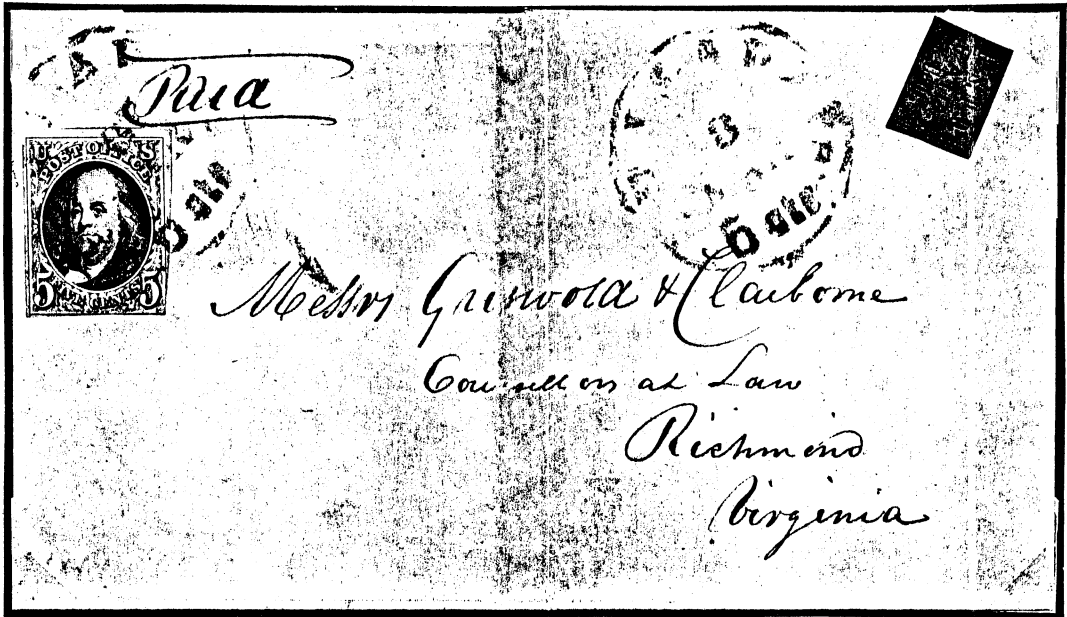 Paid
U S
POST OFFICE
5 FIVE CENTS 5
8
Messrs Griswold & Claiborne
Counsellors at Law
Richmond
Virginia